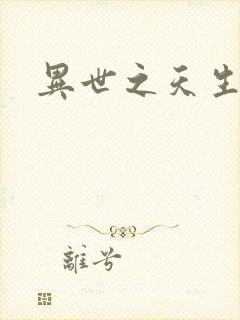 異世之天生
離兮